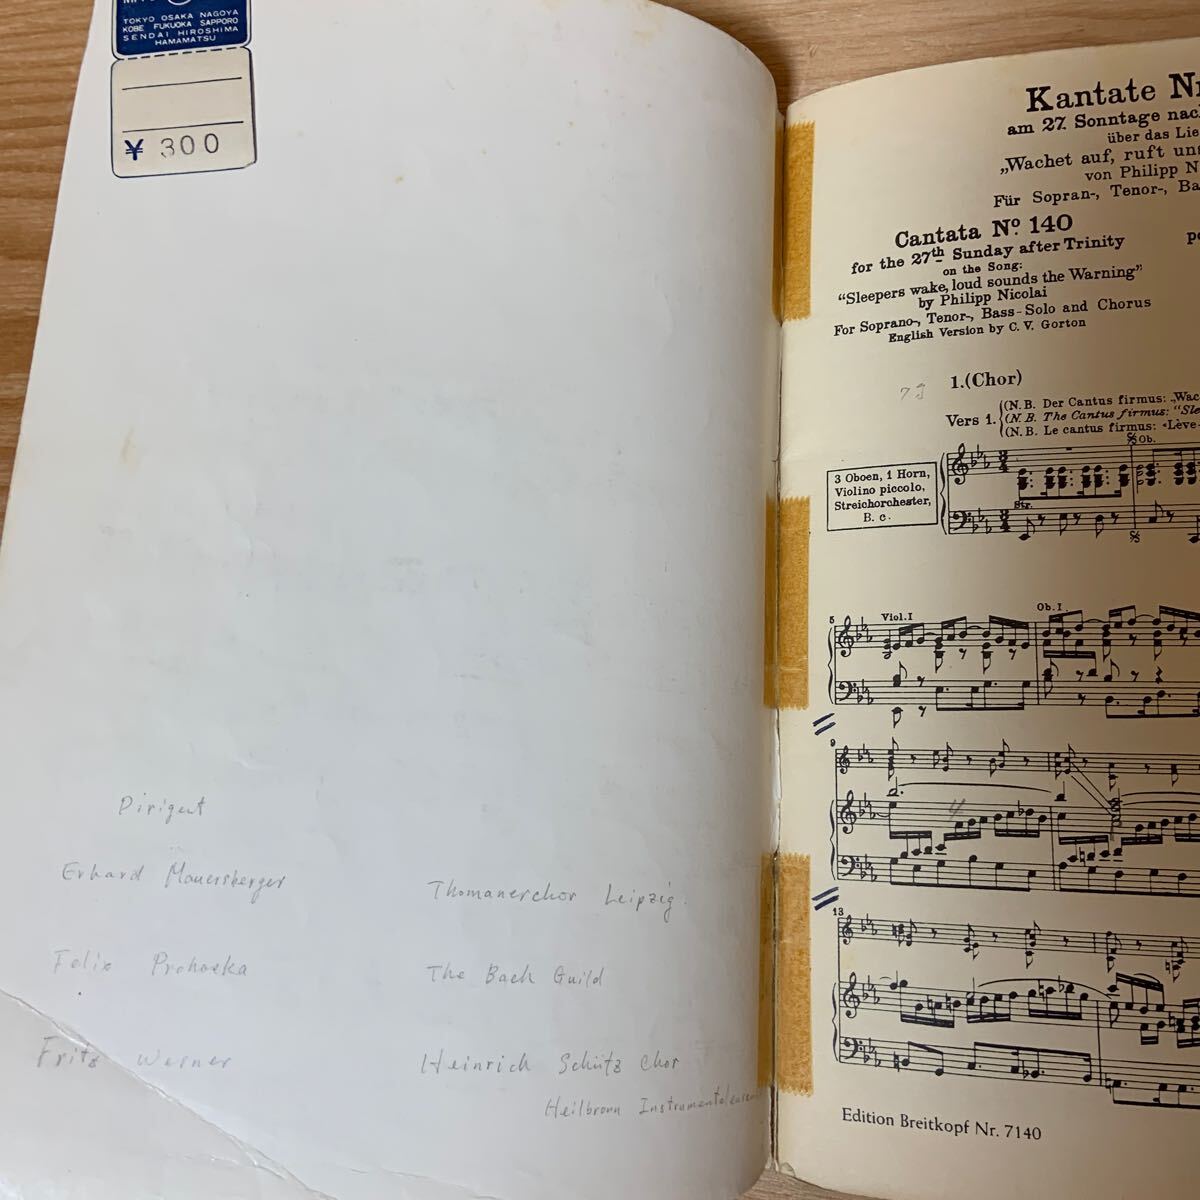 TOKYO OSAKA NAGOYA
KOBE FUKUOKA SAPPORO
SENDAI HIROSHIMA
HAMAMATSU
¥ 300
Dirigent
Erhard Mauersberger
Thomanerchor Leipzig.
Felix Prohaska
The Bach Guild
Fritz Werner
Heinrich Schütz Chor
Heilbronn Instrumentalensem
Kantate Nr
am 27. Sonntage nach
über das Lie
„Wachet auf, ruft uns
von Philipp N
Für Sopran-, Tenor-, Ba
Cantata Nº 140
for the 27th Sunday after Trinity
on the Song:
“Sleepers wake, loud sounds the Warning”
by Philipp Nicolai
For Soprano-, Tenor-, Bass-Solo and Chorus
English Version by C. V. Gorton
po
1.(Chor)
Vers 1.
(N. B. Der Cantus firmus: „Wac
(N. B. The Cantus firmus: “Sle
(N. B. Le cantus firmus: «Lève-
Ob.
3 Oboen, 1 Horn,
Violino piccolo,
Streichorchester,
B. c.
Str.
5
Viol. I
Ob. I.
9
4
13
Edition Breitkopf Nr. 7140